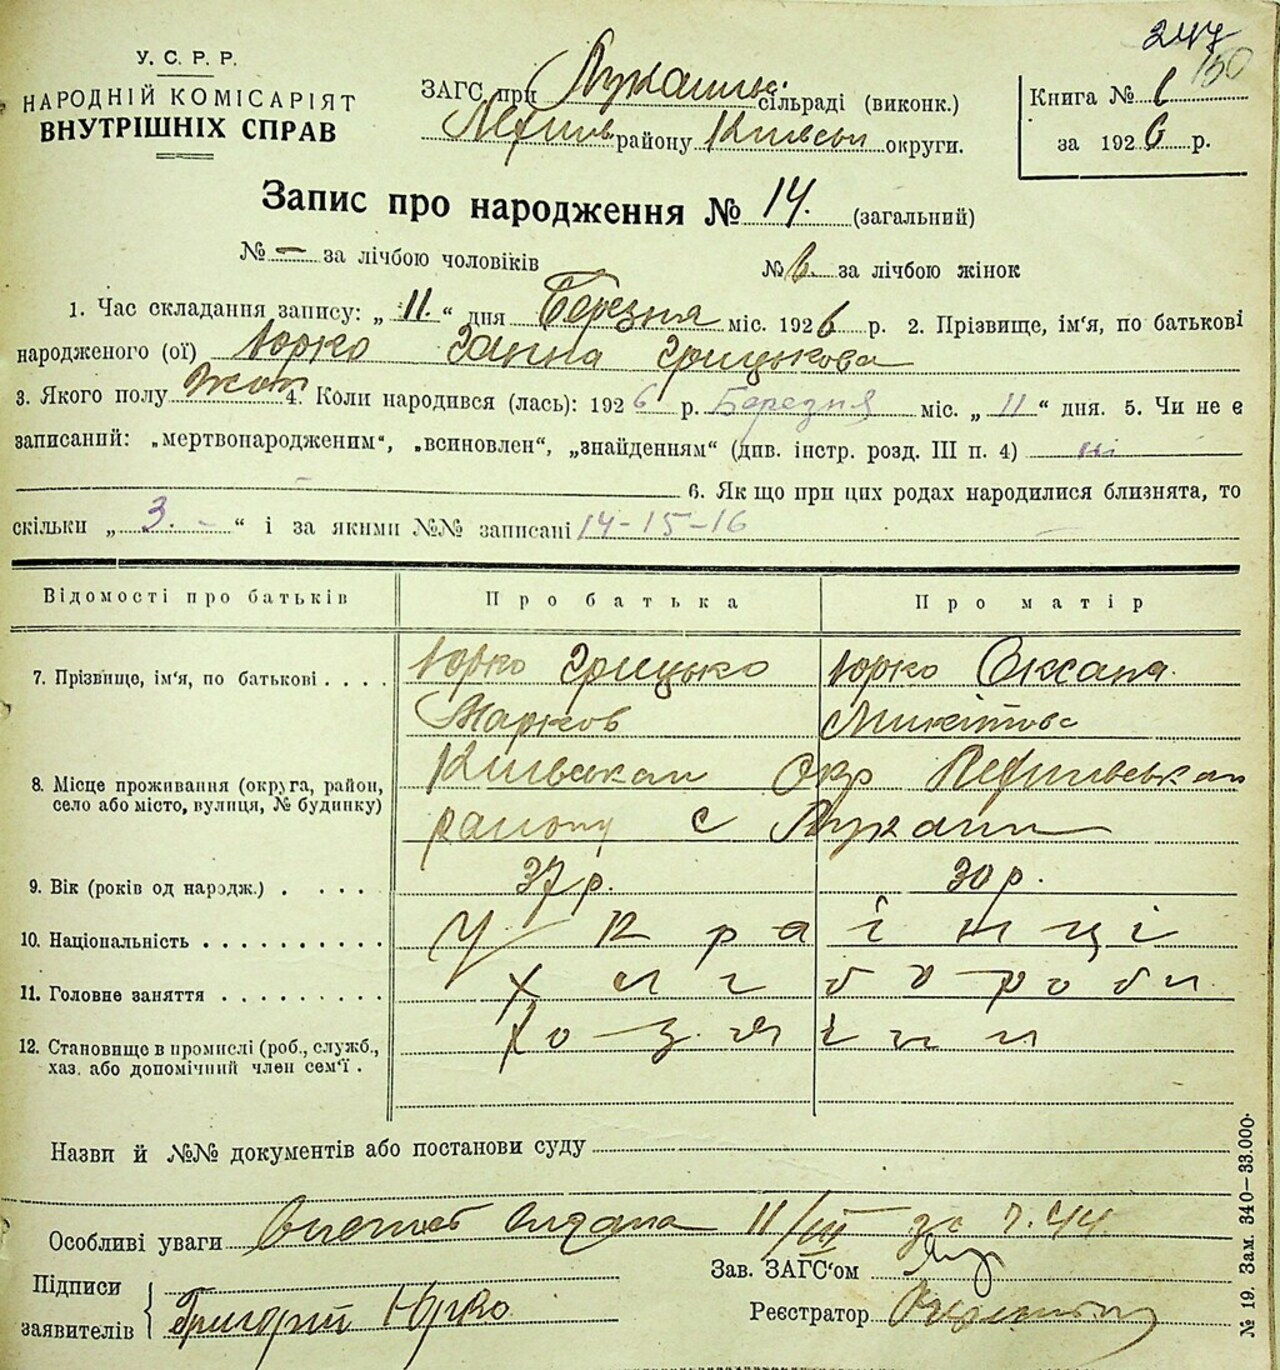 247
150
У. С. Р. Р.
НАРОДНІЙ КОМІСАРІЯТ
ВНУТРІШНІХ СПРАВ
ЗАГС при Лукаши сільраді (виконк.)
району Київськ округи.
Книга № 6
за 1926 р.
Запис про народження № 14. (загальний)
№ — за лічбою чоловіків
№ 6. за лічбою жінок
1. Час складання запису: „ 11. “ дня Березня міс. 1926 р. 2. Прізвище, ім‘я, по батькові
народженого (ої) Юрко Ганна Грицькова
3. Якого полу Жон 4. Коли народився (лась): 1926 р. Березня міс. „ 11 “ дня. 5. Чи не є
записаний: „мертвонародженим“, „всиновлен“, „знайденням“ (див. інстр. розд. III п. 4) ні
6. Як що при цих родах народилися близнята, то
скільки „ 3. - “ і за якими №№ записані 14-15-16
Відомості про батьків
Про батька
Про матір
7. Прізвище, ім‘я, по батькові . . . .
Юрко Грицько
Юрко Оксана
Марков
Микітова
8. Місце проживання (округа, район,
село або місто, вулиця, № будинку)
Київськаи Окр
району с Лукаши
9. Вік (років од народж.) . . . . .
37 р.
30 р.
10. Національність . . . . . . . . . .
Українці
11. Головне заняття . . . . . . . . .
хлібороби
12. Становище в промислі (роб., служб.,
хаз. або допомічний член сем‘ї .
Хозяїни
Назви й №№ документів або постанови суду
Особливі уваги видана 11/III за № 44.
Підписи
заявителів
Григорій Юрко
Зав. ЗАГС‘ом
Реєстратор
№ 19. Зам. 340—33.000.